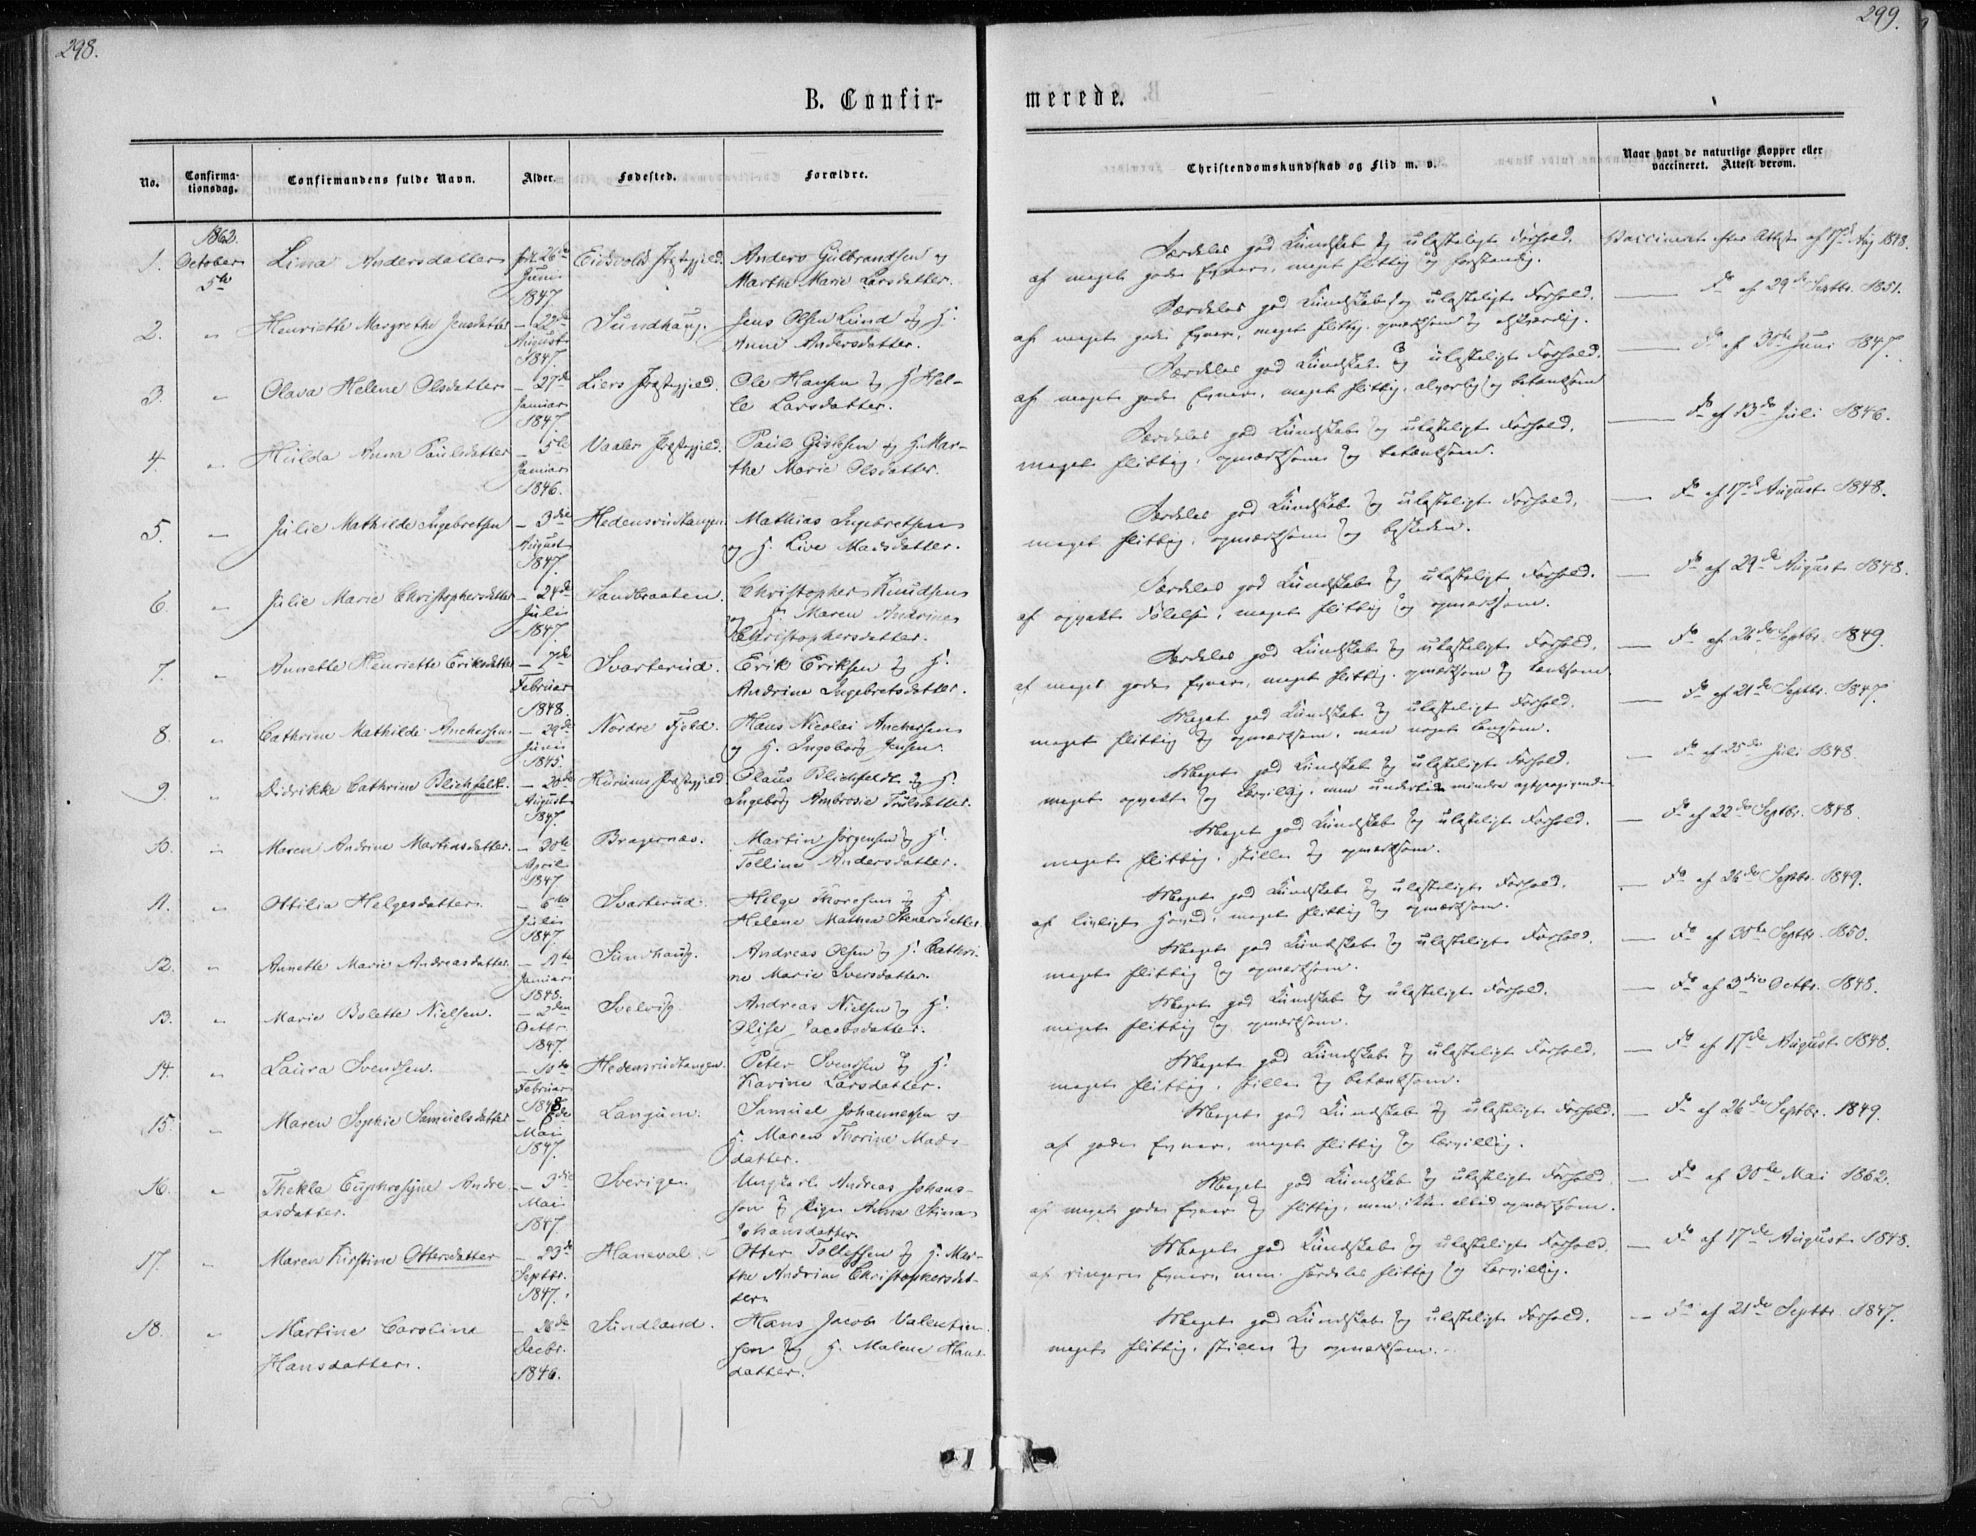 298.
299.
B. Confir-
merede.
No.
Confirma-
tionsdag.
Confirmandens fulde Navn.
Alder.
Fødested.
Forældre.
Christendomskundskab og Flid m. v.
Naar havt de naturlige Kopper eller
vaccineret. Attest derom.
1862.
1. October Lina Andersdatter 26de Eidsvolds Præstegjeld. Anders Gulbrandsen og
5te Juni Marthe Marie Larsdatter.
1847.
Særdeles god Kundskab og ulasteligt Forhold.
af meget gode Evner, meget flittig og forstandig.
Vaccineret efter Attest af 17de Aug 1848.
2. " Henriette Margrethe Jensdatter - 22de Sundhaug. Jens Olsen Lund og H.
August Anne Andersdatter.
1847.
Særdeles god Kundskab og ulasteligt Forhold.
af meget gode Evner, meget flittig, opmærksom og
Do af 29de Septbr. 1851.
3. " Olava Helene Olsdatter - 27de Liers Præstegjeld. Ole Hansen og H. Hel-
Januar le Larsdatter.
1847.
Særdeles god Kundskab og ulasteligt Forhold.
af meget gode Evner, meget flittig, alvorlig og betænksom
Do af 30te Juni 1847.
4. " Hulda Anna Paulsdatter - 5te Vaaler Præstegjeld. Paul og H. Mar-
Januar the Marie Olsdatter.
1846.
Særdeles god Kundskab og ulasteligt Forhold.
meget flittig, opmærksom og betænksom.
Do af 13de Juli 1846.
5. " Julie Mathilde Ingebretsen - 3die Hedensrudtangen Mathias Ingebretsen
August og H. Live Madsdatter.
1847.
Særdeles god Kundskab og ulasteligt Forhold.
meget flittig, opmærksom og beskeden.
Do af 17de August 1848.
6. " Julie Marie Christophersdatter - 24de Sandbraaten. Christopher Knudsen
Juli og H. Maren Andrine
1847. Christophersdatter.
Særdeles god Kundskab og ulasteligt Forhold.
af opvakt Følelse, meget flittig og opmærksom.
Do af 29de August 1848.
7. " Annette Henriette Eriksdatter - 7de Svarterud. Erik Eriksen og H.
Februar Andrine Ingebretsdatter.
1848.
Særdeles god Kundskab og ulasteligt Forhold.
af meget gode Evner, meget flittig, opmærksom og tænksom
Do af 26de Septbr. 1849.
8. " Cathrine Mathilde Anchersen - 29de Nordre Fjeld. Hans Nicolai Anchersen
Juni og H. Ingeborg Jensen.
1845.
Meget god Kundskab og ulasteligt Forhold.
meget flittig og opmærksom, men noget langsom.
Do af 21de Septbr. 1847.
9. " Didrikke Cathrine Blichfeldt. - 20de Hurums Præstegjeld Olaus Blichfeldt og H.
August Ingeborg Ambrosie
1847.
Meget god Kundskab og ulasteligt Forhold.
meget opvakt og lærvillig, men undertiden mindre
Do af 25de Juli 1848.
10. " Maren Andrine Martinsdatter. - 30te Bragernæs. Martin Jørgensen og H.
April Tolline Andersdatter.
1847
Meget god Kundskab og ulasteligt Forhold.
meget flittig, stille og opmærksom.
Do af 22de Septbr. 1848.
11. " Ottilia Helgesdatter. - 6te Svarterud. Helge Thoresen og H
Juli Helene
1847
Meget god Kundskab og ulasteligt Forhold.
af livligt Hoved, meget flittig og opmærksom.
Do af 26de Septbr. 1849.
12. " Annette Marie Andreasdatter - 11te Sundhaug. Andreas Olsen og H. Cathri-
Januar ne Marie Iversdatter.
1848.
Meget god Kundskab og ulasteligt Forhold.
meget flittig og opmærksom.
Do af 30te Septbr. 1850.
13. " Marie Bolette Nielsen. - 2den Svelvig. Andreas Nielsen og H.
Octbr. Olise Jacobsdatter.
1847.
Meget god Kundskab og ulasteligt Forhold.
meget flittig og opmærksom.
Do af 3die Octbr. 1848.
14. " Laura Svendsen. - 10de Hedensrudtangen. Peter Svendsen og H.
Februar Karine Larsdatter.
1848
Meget god Kundskab og ulasteligt Forhold.
meget flittig, stille og betænksom.
Do af 17de August 1848.
15. " Maren Sophie Samuelsdatter - 8de Langum. Samuel Johannesen og
Mai H. Maren Thorine Mads-
1847. datter.
Meget god Kundskab og ulasteligt Forhold.
af gode Evner, meget flittig og lærvillig.
Do af 26de Septbr. 1849.
16. " Thekla Euphrosyne Andre- - 3die Sverige. Ungkarl Andreas Johans-
asdatter. Mai son og Pige Anna Stina
1847. Johansdatter.
Meget god Kundskab og ulasteligt Forhold.
af meget gode Evner og flittig, men ikke altid opmærksom.
Do af 30te Mai 1862.
17. " Maren Kirstine Ottersdatter - 23de Haneval. Otter Tollefsen og H. Mar-
Septbr. the Andrine Christophersdat-
1847. ter.
Meget god Kundskab og ulasteligt Forhold.
af ringere Evner, men særdeles flittig og lærvillig.
Do af 17de August 1848.
18. " Martine Caroline - 28de Sundland. Hans Jacob Valentin-
Hansdatter. Decbr. sen og H. Malene Hans-
1846. datter.
Meget god Kundskab og ulasteligt Forhold.
meget flittig, stille og opmærksom.
Do af 21de Septbr. 1847.